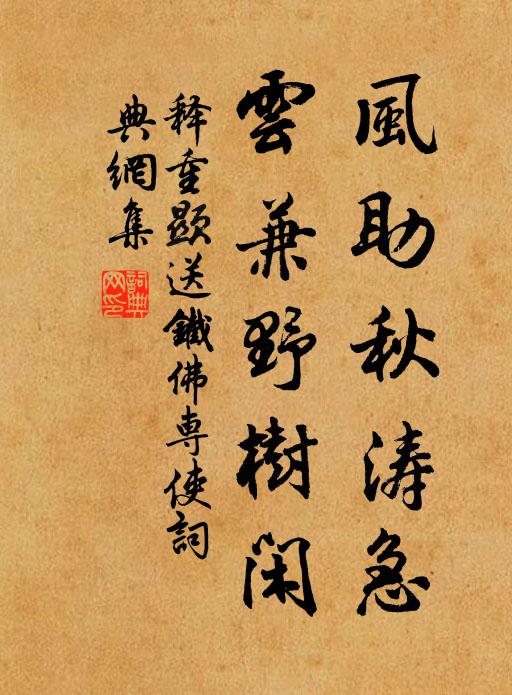 風助秋涛急
雲兼野樹闲
释重顯送鐵佛専使詞
典網集
詞典
网印